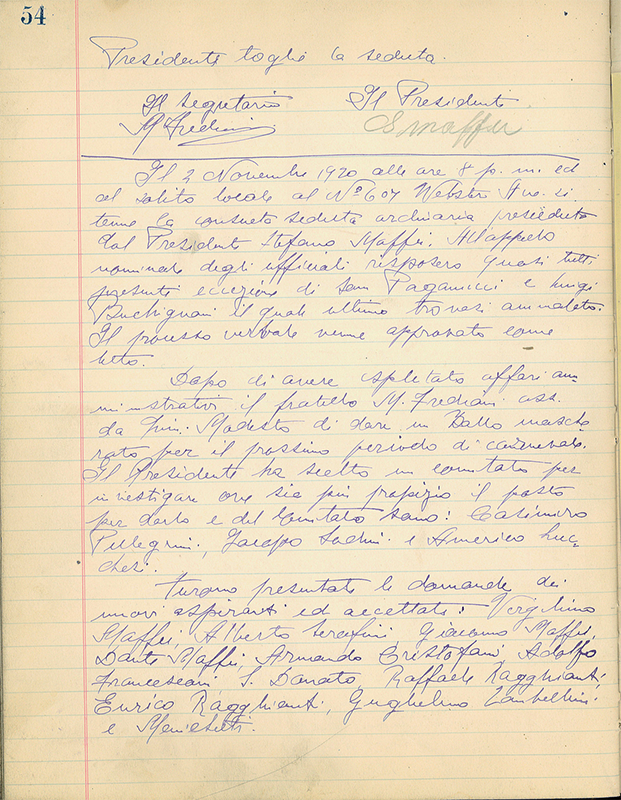 54
Presidente toglie la seduta.
Il Segretario Il Presidente
M Frediani S Maffei
Il 2 Novembre 1920 alle ore 8 p. m. ed
al solito locale al No 607 Webster Ave. si
tenne la consueta seduta ordinaria presieduta
dal Presidente Stefano Maffei. All'appello
nominale degli ufficiali risposero quasi tutti
presente eccezione di Sam Paganucci e Luigi
Buchignani il quale ultimo trovasi ammalato.
Il processo verbale venne approvato come
letto.
Dopo di avere espletato affari am
ministrativi il fratello M. Frediani ass.
da Modesti di dare un Ballo masche
rato per il prossimo periodo di carnevale.
Il Presidente ha scelto un comitato per
investigare ove sia più propizio il posto
per darlo e del Comitato sono: Casimiro
Pellegrini, Jacopo e Americo Luc-
chesi.
Furono presentate le domande dei
nuovi aspiranti ed accettate: Virgilino
Maffei, Alberto Serafini, Giacomo Maffei,
Dante Maffei, Armando Cristofani, Adolfo
Francesconi, S. Donato, Raffaele Ragghianti,
Enrico Ragghianti, Guglielmo Zambellini
e Menichetti.